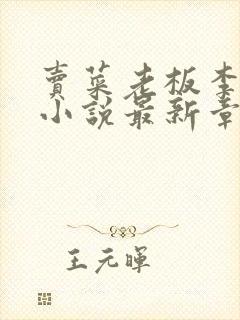 賣菜老板李
小說最新章
王元暉